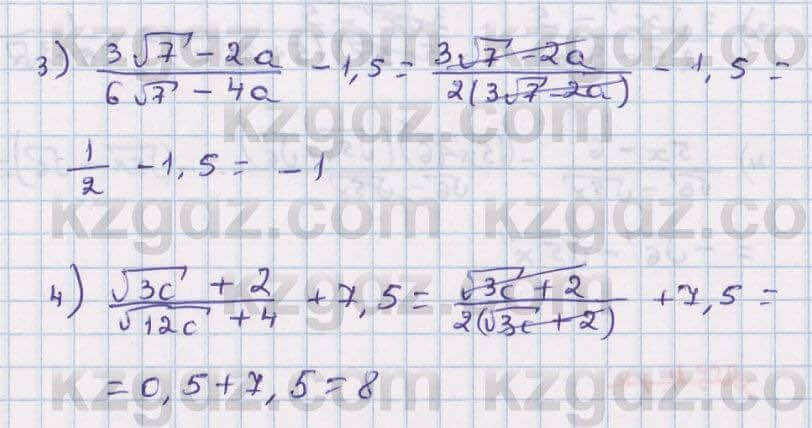 3) (3√7 - 2a)/(6√7 - 4a) - 1,5 = (3√7 - 2a)/(2(3√7 - 2a)) - 1,5 =
1/2 - 1,5 = -1
4) (√3c + 2)/(√12c + 4) + 7,5 = (√3c + 2)/(2(√3c + 2)) + 7,5 =
= 0,5 + 7,5 = 8
kzgdz.com
kzgdz.com
kzgdz.co
kzgdz.com
kzgdz.co
kzgdz.com
kzgdz.co